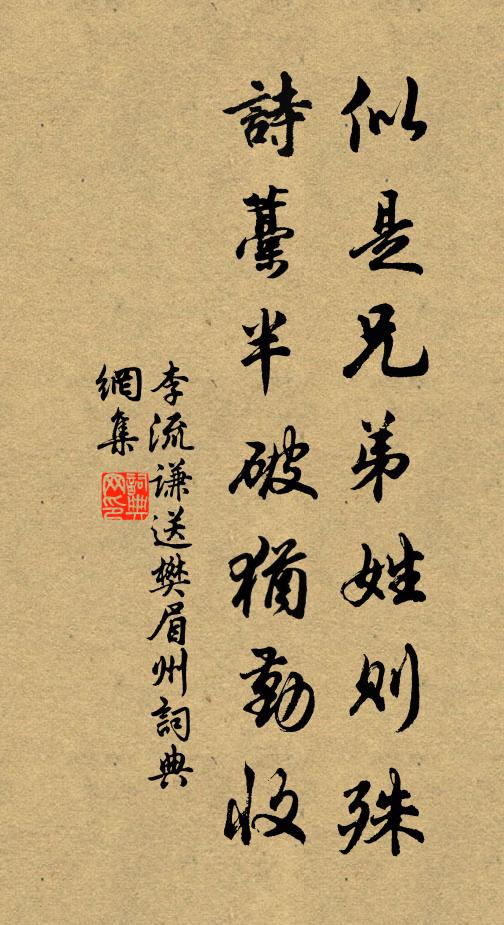 似是兄弟姓則殊
詩藁半破猶勤收
李流謙送樊眉州詞典
網集
詞典網印